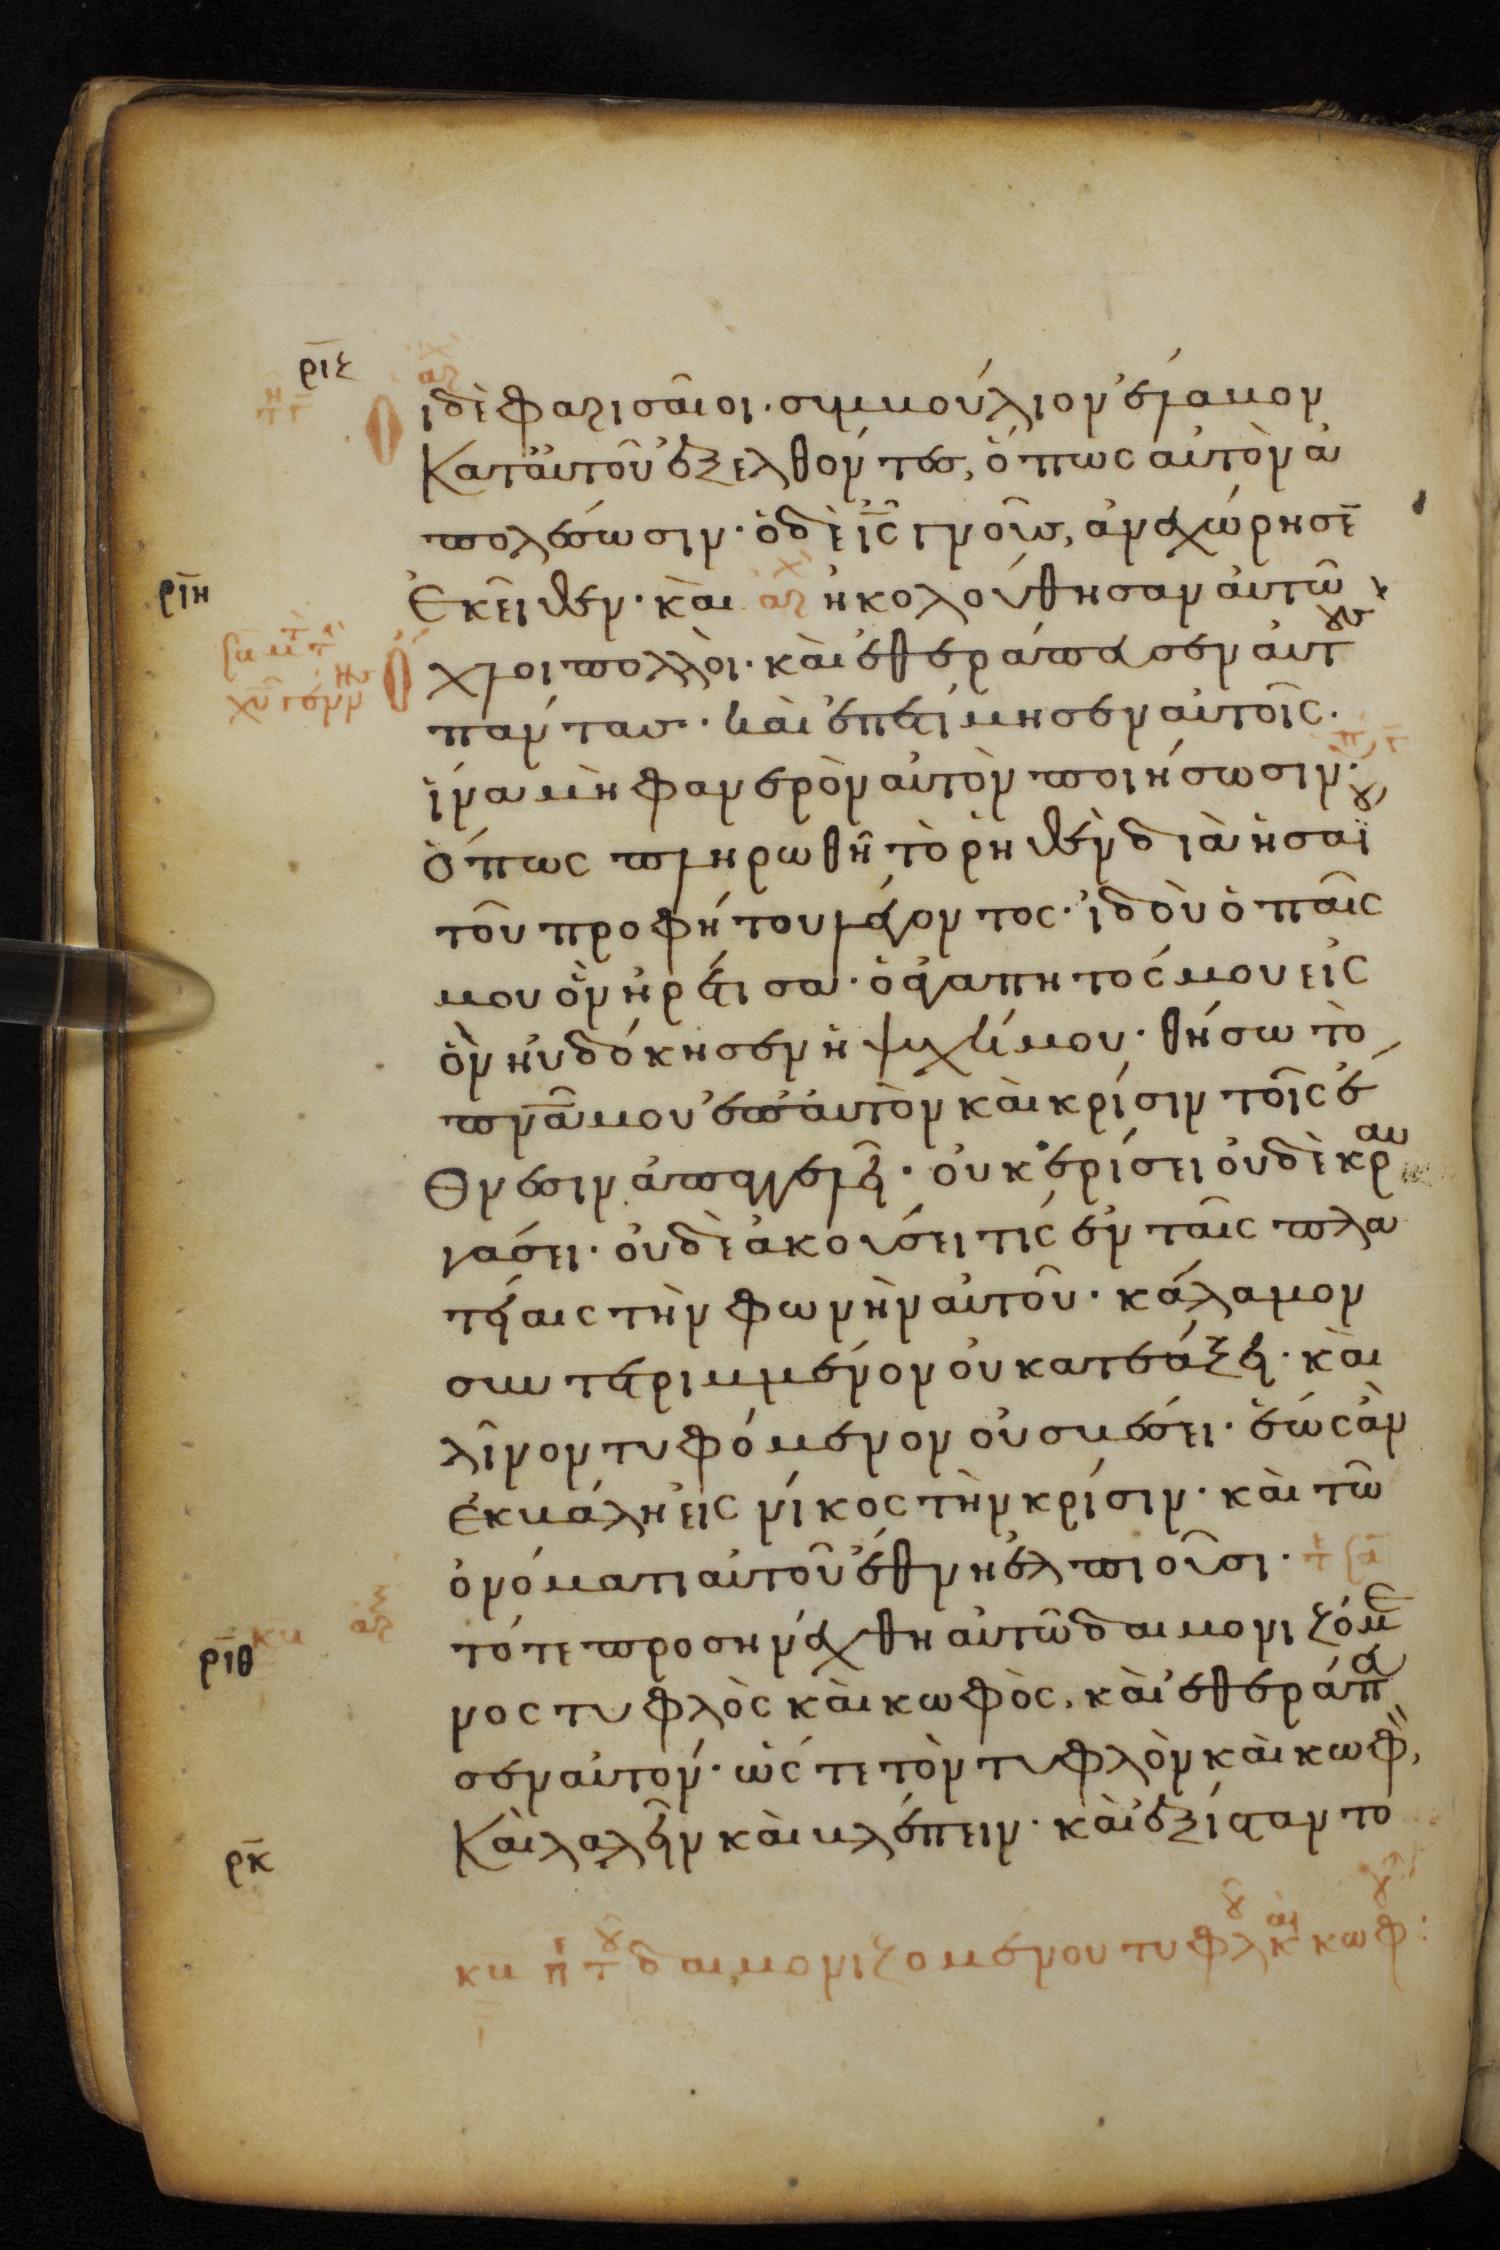 ρις
Οἱ δὲ φαρισαῖοι· συμβούλιον ἔλαβον
Κατ' αὐτοῦ ἐξελθόντες, ὅπως αὐτὸν ἀ
πολέσωσιν· ὁ δὲ ι̅ς̅ γνοῦς, ἀνεχώρησε̅
ριη Ἐκεῖθεν· καὶ ἠκολούθησαν αὐτῶ
Ὄχλοι πολλοὶ· καὶ ἐθεράπευσεν αὐτους
πάντας· καὶ ἐπετίμησεν αὐτοῖς·
ἵνα μὴ φανερὸν αὐτὸν ποιήσωσιν·
Ὅπως πληρωθῆ τὸ ῥηθὲν διὰ ἡσαΐου
τοῦ προφήτου λέγοντος· ἰδοὺ ὁ παῖς
μου ὃν ἡρέτισα· ὁ ἀγαπητός μου εἰς
ὃν ηὐδόκησεν ἡ ψυχή μου· θήσω τὸ
πν̅α̅ μου ἐπ' αὐτὸν καὶ κρίσιν τοῖς ἔ
Θνεσιν ἀπαγγελεῖ· οὐκ ἐρίσει οὐδὲ κραυ
γάσει· οὐδὲ ἀκούσει τίς ἐν ταῖς πλα
τείαις τὴν φωνὴν αὐτοῦ· κάλαμον
συντετριμμένον οὐ κατεάξει· καὶ
λῖνον τυφόμενον οὐ σβέσει· ἕως ἂν
Ἐκβάλη εἰς νίκος τὴν κρίσιν· καὶ τῶ
ὀνόματι αὐτοῦ ἔθνη ἐλπιοῦσι·
ριθ κβ τότε προσηνέχθη αὐτῶ δαιμονιζόμε
νος τυφλὸς καὶ κωφὸς, καὶ ἐθεράπευ
σεν αὐτόν· ὥστε τὸν τυφλὸν καὶ κωφὸ,
ρκ Καὶ λαλεῖν καὶ βλέπειν· καὶ ἐξίσταντο
κβ π τοῦ δαιμονιζομένου τυφλοῦ καὶ κωφοῦ: